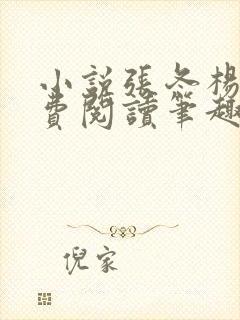 小説張冬楊
費閱讀筆趣
倪家